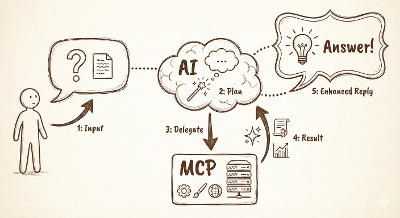 ?
AI
Answer!
2: Plan
5: Enhanced Reply
1: Input
3: Delegate
4: Result
MCP